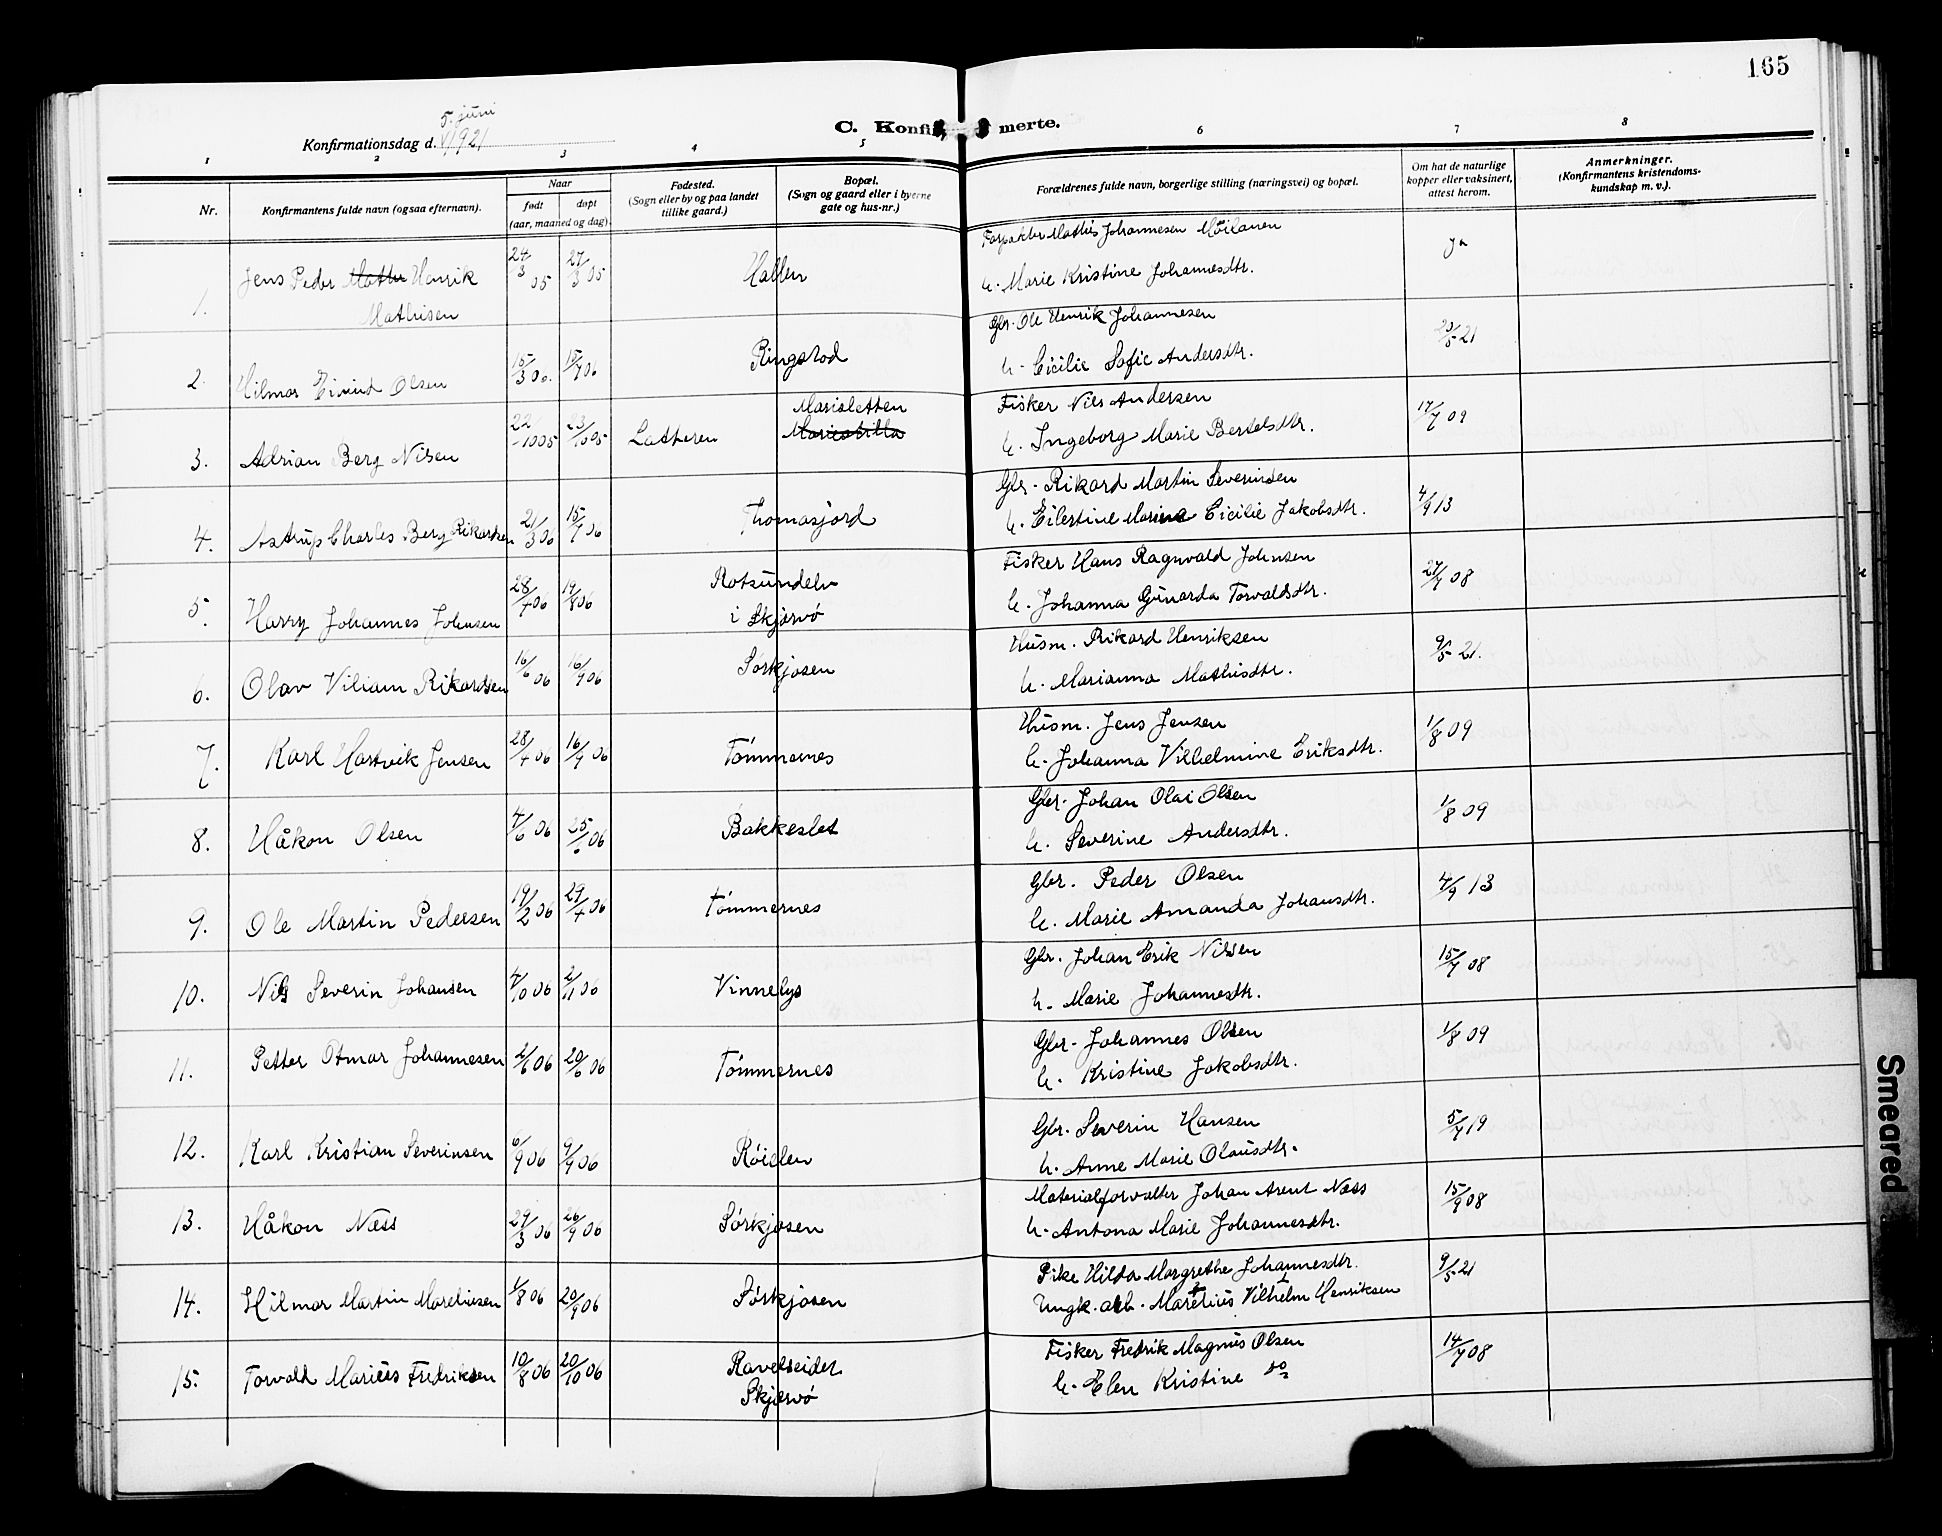 165
C. Konfi merte.
5. juni
Konfirmationsdag d. 1921
1 2 3 4 5 6 7 8
Nr.
Konfirmantens fulde navn (ogsaa efternavn).
Naar
født
døpt
(aar, maaned og dag).
Fødested.
(Sogn eller by og paa landet
tillike gaard.)
Bopæl.
(Sogn og gaard eller i byerne
gate og hus-nr.)
Forældrenes fulde navn, borgerlige stilling (næringsvei) og bopæl.
Om hat de naturlige
kopper eller vaksinert,
attest herom.
Anmerkninger.
(Konfirmantens kristendoms-
kundskap m. v.).
1. Jens Peder Henrik
Mathisen
24/3 05 27/3 05
Hallen
Mathis Johannesen
h. Marie Kristine Johannesdtr.
ja
2. Hilmar Olsen
15/3 06 15/7 06
Gbr. Ole Henrik Johannesen
h. Cicilie Sofie Andersdtr.
23/5 21
3. Adrian Berg Nilsen
22/10 05 23/10 05
Marisletten
Fisker Nils Andersen
h. Ingeborg Marie Bertelsdtr.
17/7 09
4. Astrup Charles Berg Rikardsen
21/3 06 15/7 06
Thomasjord
Gbr. Rikard Martin Severinsen
h. Eilertine Marina Cicilie Jakobsdtr.
4/9 13
5. Harry Johannes Johnsen
28/7 06 19/8 06
Rotsundelv
i Skjærvø
Fisker Hans Ragnvald Johnsen
h. Johanna Gunarda Torvaldsdtr.
27/7 08
6. Olav Viliam Rikardsen
16/6 06 16/9 06
Sørkjosen
Husm. Rikard Henriksen
h. Marianna Mathisdtr.
9/5 21.
7. Karl Hartvik Jensen
28/4 06 16/7 06
Tømmernes
Husm. Jens Jensen
h. Johanna Vilhelmine Eriksdtr.
1/8 09
8. Håkon Olsen
4/6 06 25/6 06
Bakkeslet
Gbr. Johan Olai Olsen
h. Severine Andersdtr.
1/8 09
9. Ole Martin Pedersen
19/2 06 29/4 06
Tømmernes
Gbr. Peder Olsen
h. Marie Amanda Johansdtr.
4/9 13
10. Nils Severin Johansen
4/10 06 2/11 06
Vinnelys
Gbr. Johan Erik Nilsen
h. Marie Johannesdtr.
15/7 08
11. Petter Otmar Johannesen
2/6 06 20/6 06
Tømmernes
Gbr. Johannes Olsen
h. Kristine Jakobsdtr.
1/8 09
12. Karl Kristian Severinsen
6/9 06 9/9 06
Røielen
Gbr. Severin Hansen
h. Anne Marie Olausdtr.
5/7 19
13. Håkon Næss
29/3 06 26/9 06
Sørkjosen
Materialforvalter Johan Arent Næss
h. Antona Marie Johannesdtr.
15/9 08
14. Hilmar Martin Mareliusen
1/8 06 20/9 06
Sørkjosen
Pike Hilda Margrethe Johannesdtr.
Ungk. arb. Marelius Vilhelm Henriksen
9/5 21
15. Torvald Marius Fredriksen
10/8 06 20/10 06
Ravelseidet
Skjærvø
Fisker Fredrik Magnus Olsen
h. Elen Kristine do
14/7 08
Smeared